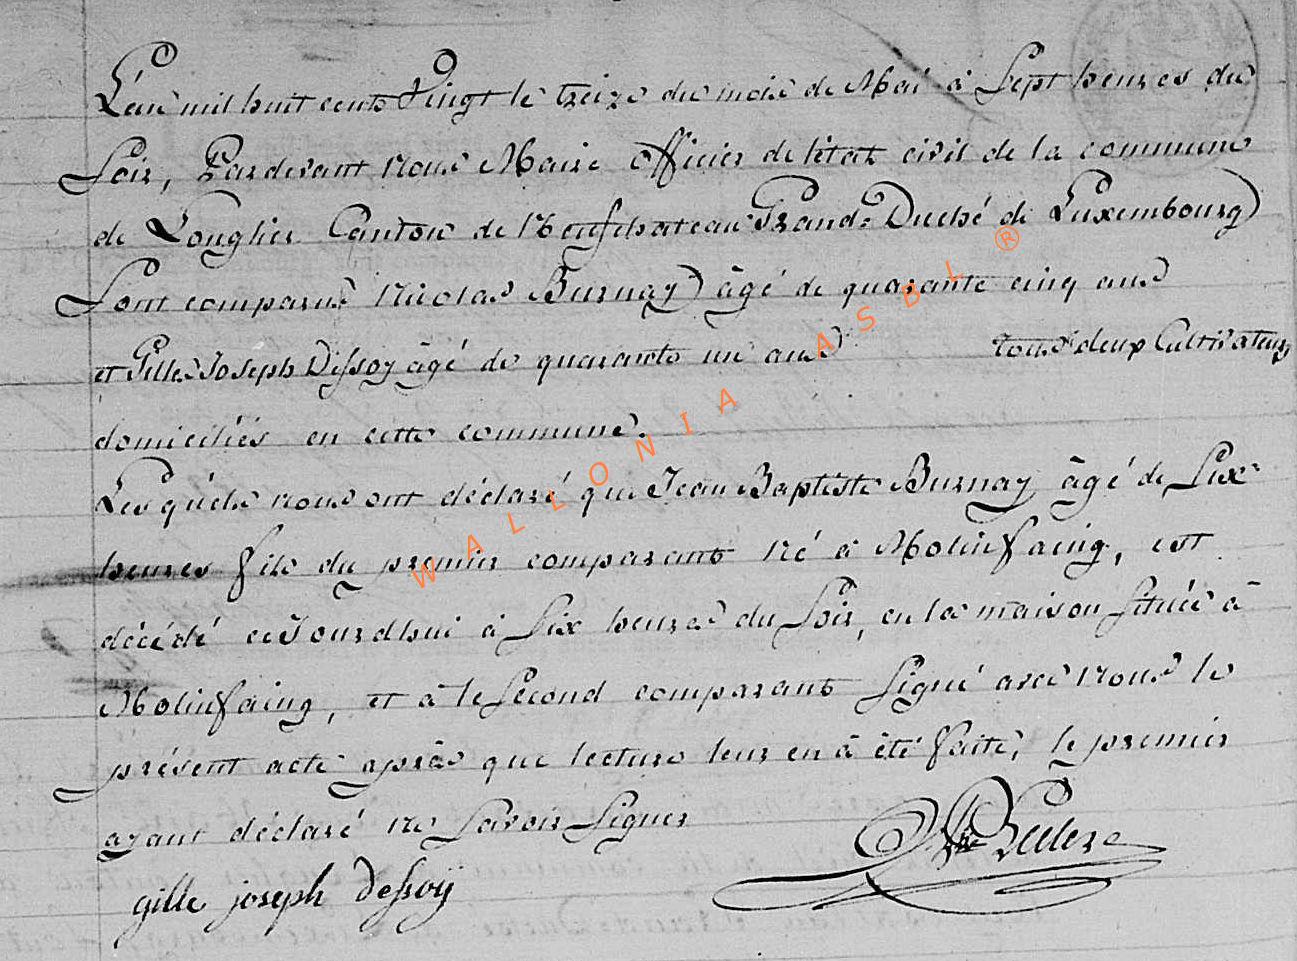 L'an mil huit cents Vingt le treize du mois de Mai à Sept heures du
Soir, Pardevant Nous Maire Officier de létat civil de la commune
de Longlier Canton de Neufchateau Grand Duché de Luxembourg
Sont comparus Nicolas Burnay âgé de quarante cinq ans
et Gilles Joseph Dessoy âgé de quarante un ans tous deux Cultivateurs
domiciliés en cette commune.
Les quéls nous ont déclaré que Jean Baptiste Burnay âgé de Six
heures fils du premier comparant né à Molinfaing, est
décédé ce Jourdhui à Six heures du Soir, en la maison Située à
Molinfaing, et à le Sécond comparant Signé avec Nous le
présent acte après que lecture leur en à été faite, le premier
ayant déclaré ne Savoir Signer
gille joseph dessoÿ
WALLONIA ASBL ®